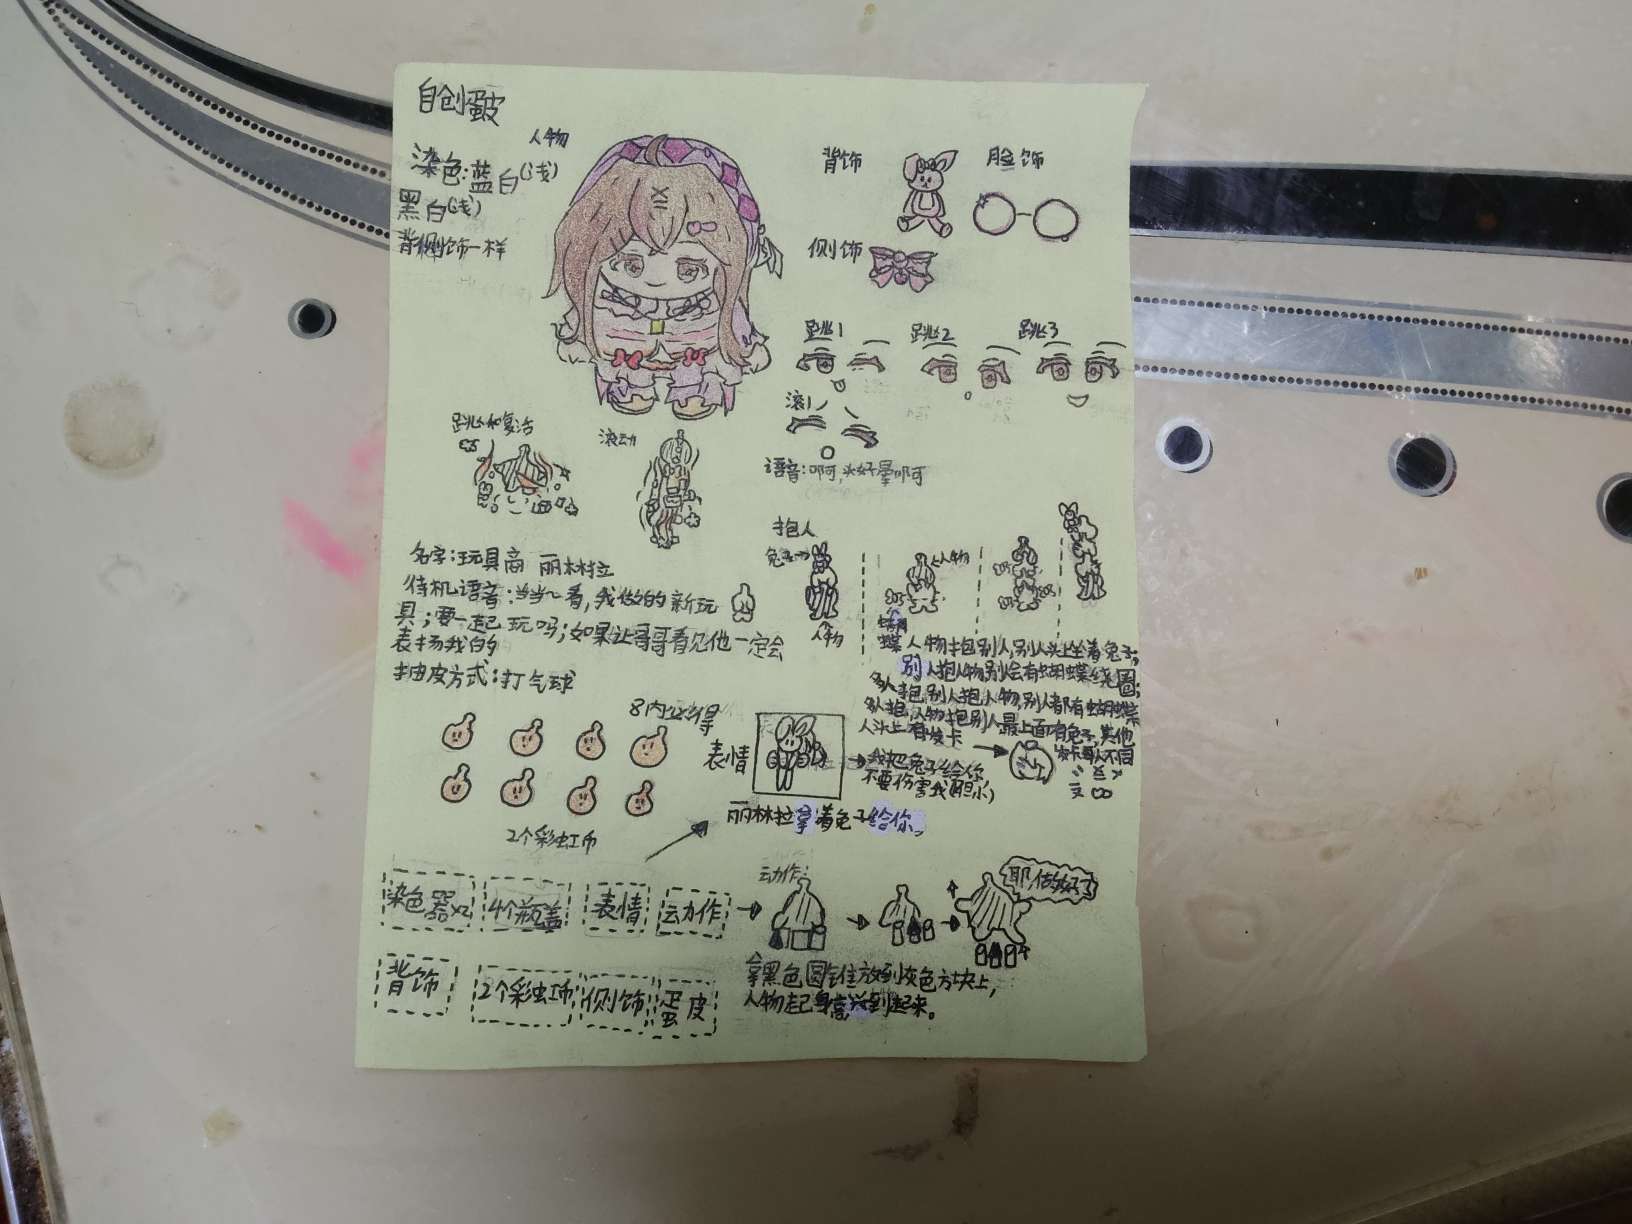 自创蛋皮
人物
染色:蓝白(浅)
黑白(浅)
背侧饰一样
背饰
脸饰
侧饰
跳1
跳2
跳3
滚1
语音:啊,头好晕啊
跳和复活
滚动
名字:玩具商 丽林拉
待机语音:当当~看,我做的新玩
具;要一起玩吗;如果让哥哥看见他一定会
表扬我的
抽皮方式:打气球
抱人
兔子→
人物
人物
蝴蝶
人物抱别人,别人头上坐着兔子;
别人抱人物别人会有蝴蝶绕圈;
多人抱别人抱人物,别人都有蝴蝶
多人抱,人物抱别人最上面有兔子,其他
人头上有发卡
发卡每人不同
8内必得
2个彩虹币
表情
我把兔子给你
不要伤害我(胆小)
丽林拉拿着兔子给你。
染色器x2
4个瓶盖
表情
动作
动作:
耶,做好了
背饰
2个彩虹币
侧饰
蛋皮
拿黑色圆锥放到灰色方块上,
人物起身高兴到起来。